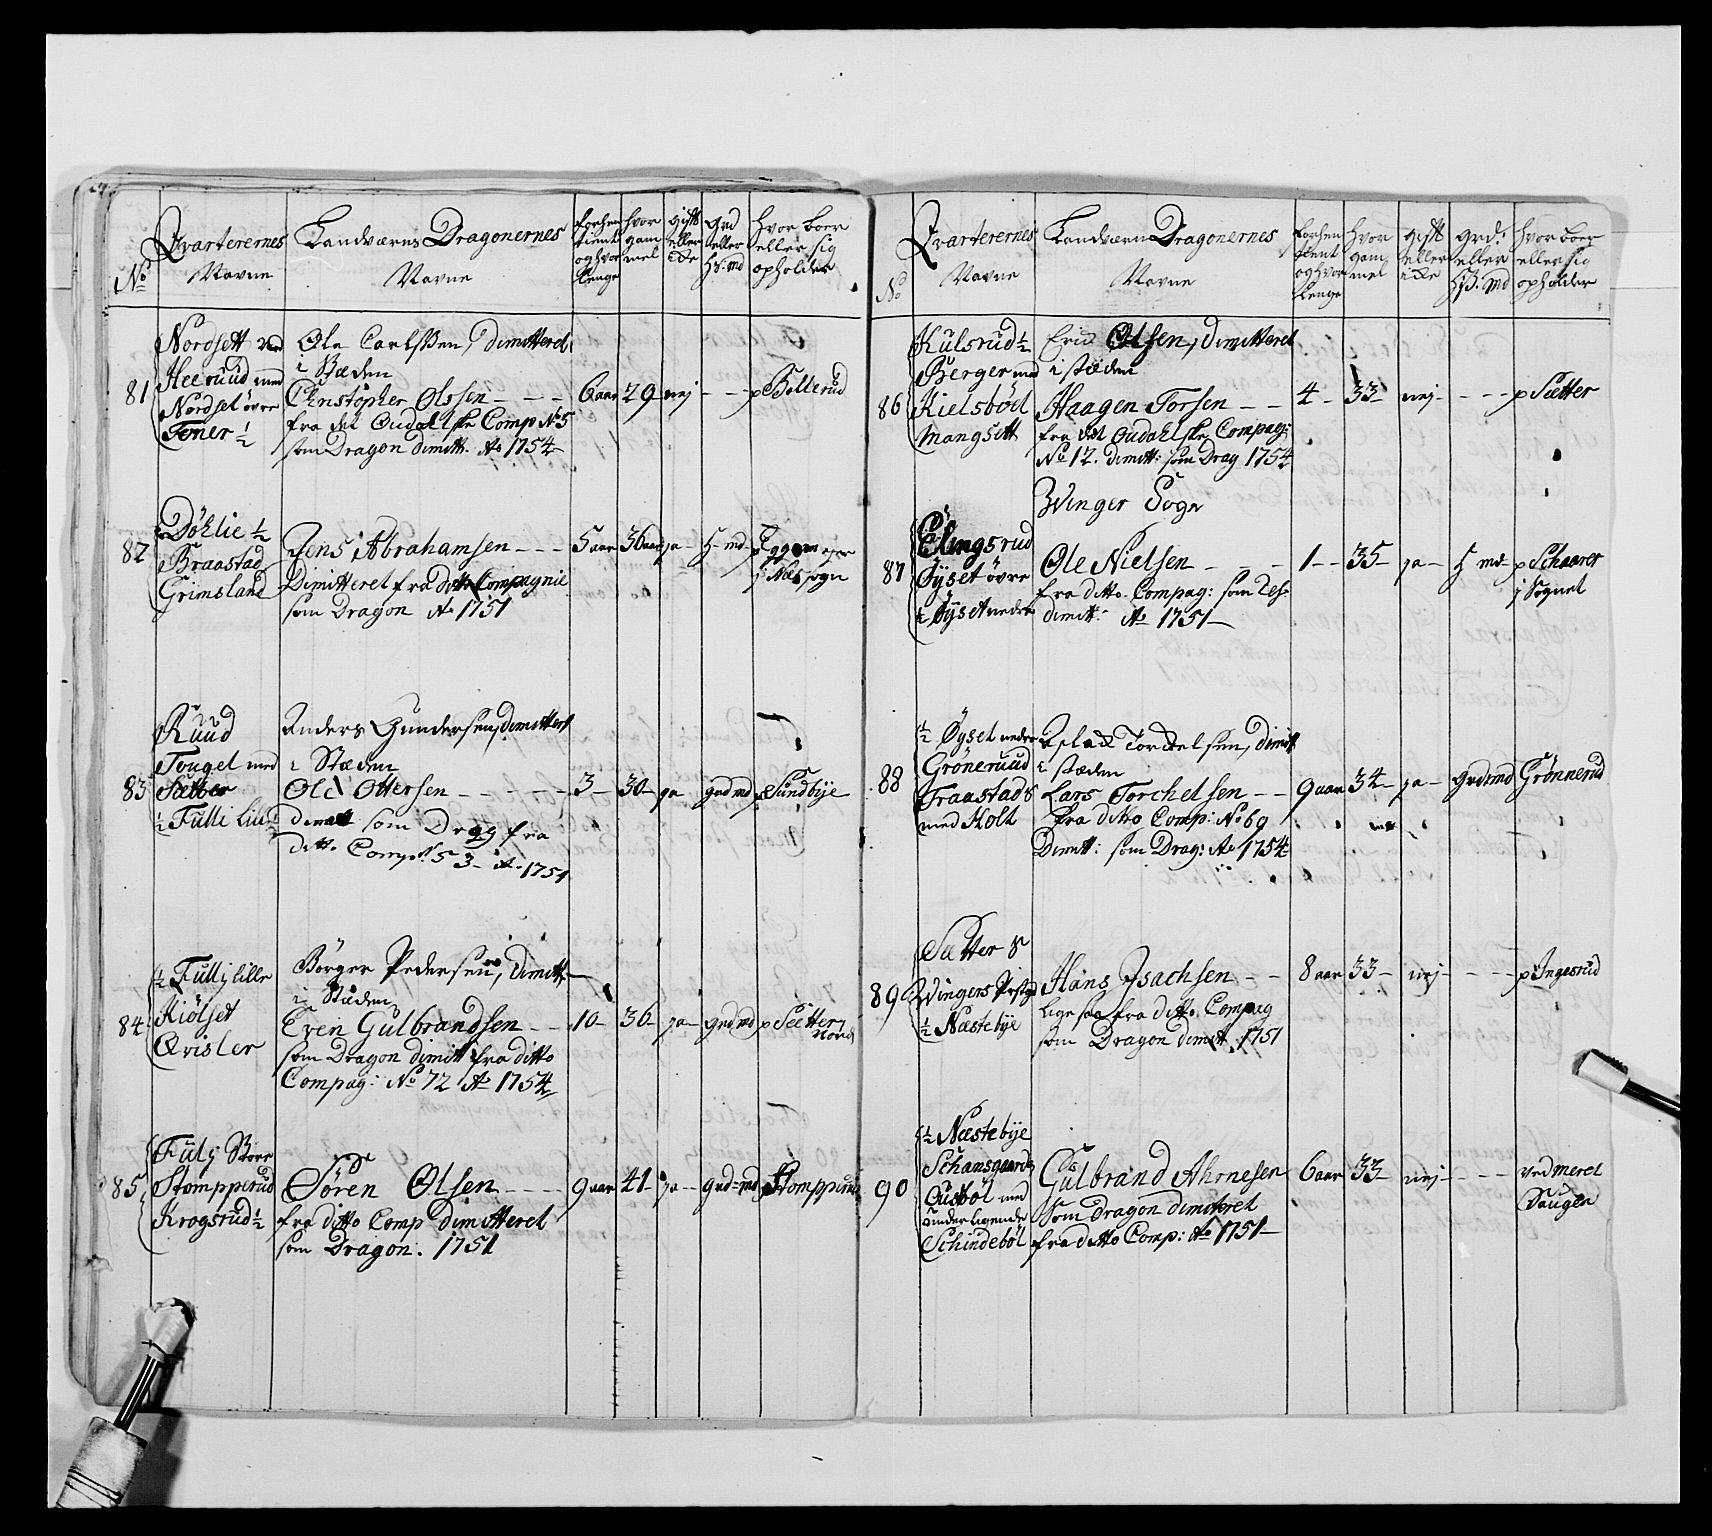 No
Qvarterernes
Navne
Landværns Dragonernes
Navne
Forhen
tient
og hvor
lenge
hvor
gam
mel
gift
eller
icke
grd
eller
H: md
hvor boer
eller sig
opholder
81
Nordsett
Heeruud med
Nordset övre
Toner ½
Ole Carlssen, dimitteret
i Stæden
Christopher Olssen
fra det Oudalske Comp No 5
som Dragon dimitt. Ao 1754
6 aar
29
nej
p Bollerud
82
Döhlie ½
Braastad
Grimsland
Jens Abrahamsen
Dimitteret fra ditto Compagnie
som Dragon Ao 1751
5 aar
36 aar
ja
H md
p Eggom
j Næs sogn
83
Ruud
Touget med
Sætter
½ Fulli
Anders Gundersen, dimittert
i Stæden
Ole Ottersen
dimitt som Drag fra
ditto Comp No 53 Ao 1751
3
30
ja
grd md
p Sundbye
84
½ Fullj lille
Kiölset
Qvisler
Börger Pedersen, dimitt
i Stæden
Even Gulbrandsen
som Dragon dimitt fra ditto
Compag: No 72 Ao 1754
10
36
ja
grd md
p Sætter
Nord
85
Fulj Store
Stompperud
Krogsrud ½
Sören Olsen
fra ditto Comp dimitteret
som Dragon. 1751
9 aar
41
ja
grd md
p Stompperud
No
Qvarterernes
Navne
Landværn Dragonernes
Navne
Forhen
tient
og hvor
lenge
hvor
gam
mel
gift
eller
icke
grd:
eller
H: md
hvor boer
eller sig
opholder
86
Kulsrud ½
Berger med
Kielsböl
Mangsett
Eric Olsen, dimitteret
i stæden
Haagen Torsen
fra det Oudahlske Compag:
No 12. dimitt: som Drag 1754
4
33
nej
p Sætter
Winger Sogn
87
Elingsrud
Öyset övre
½ Öyset nedre
Ole Nielsen
fra ditto Compag: som Res
dimitt: Ao 1751
1
35
ja
H md
p Schaarer
j Sognet
88
½ Öyset nedre
Gröneruud
Traastad &
med Holt
Aslack Torckelsen, dimitt
i stæden
Lars Torchelsen
fra ditto Comp: No 69
Dimitt: som Drag: Ao 1754
9 aar
34
ja
grdmd
Grönnerud
89
Sætter &
Wingers Prestgd
½ Næstebye
Hans Isachsen
lige saa fra ditto Compag
som Dragon dimitt 1751
8 aar
33
nej
p Ingesrud
90
½ Næstebye
Schansgaarden
Ousböl med
underligende
Schindeböl
Gulbrand Ahrnesen
som Dragon dimitteret
fra ditto Comp: Ao 1751
6 aar
33
nej
ved meret
Haugen